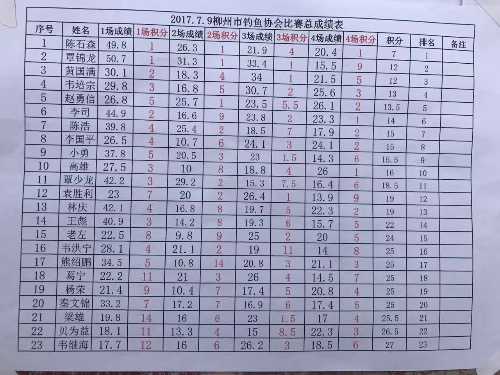 2017.7.9柳州市钓鱼协会比赛总成绩表
序号 姓名 1场成绩 1场积分 2场成绩 2场积分 3场成绩 3场积分 4场成绩 4场积分 积分 排名 备注
1 陈石森 49.8 1 26.3 1 21.9 4 20.4 1 7 1
2 覃锦龙 50.7 1 31.3 1 33.4 1 15.5 9 12 2
3 黄国满 30.1 2 18.3 4 34 1 21.5 5 12 3
4 韦培宗 29.8 3 16.8 5 30.7 2 25.6 3 13 4
5 赵勇信 26.8 5 25.7 1 23.5 5.5 26.1 2 13.5 5
6 李司 44.9 2 16.6 9 23.8 2 23.3 1 14 6
7 陈浩 39.8 4 25.4 2 18.5 7 17.9 2 15 7
8 李国平 26.5 4 10.7 6 24.1 3 24.1 2 15 8
9 小勇 37.8 5 20.5 3 23 1.5 14.3 6 15.5 9
10 高雄 27.5 3 10 8 18.8 4 26 1 16 10
11 覃少龙 42.2 3 29.2 2 15.3 7.5 16.4 6 18.5 11
12 袁胜利 23 7 20 2 26.4 1 13.9 9 19 12
13 林庆 42.1 4 16.8 8 19.7 5 22.3 2 19 13
14 王彪 40.9 3 14.2 8 19.3 6 15.7 5 22 14
15 老左 22.5 8 9.8 9 25 2 20 5 24 15
16 韦洪宁 28.1 4 21.1 2 19 11 14 8 25 16
17 熊绍鹏 34.5 5 10.8 14 20.8 3 21.1 3 25 17
18 易宁 22.2 11 21 3 26 4 14.5 7 25 18
19 杨荣 21.4 9 10.4 7 17.4 5 20.8 4 25 19
20 秦文锦 33.2 7 17.2 7 16.9 7 17.4 4 25 20
21 梁雄 19.8 14 16 6 23 1.5 17 4 25.5 21
22 贝为益 18.1 11 13.3 4 15 8.5 22.3 3 26.5 22
23 韦继海 17.7 12 16 6 26.2 3 18.5 6 27 23